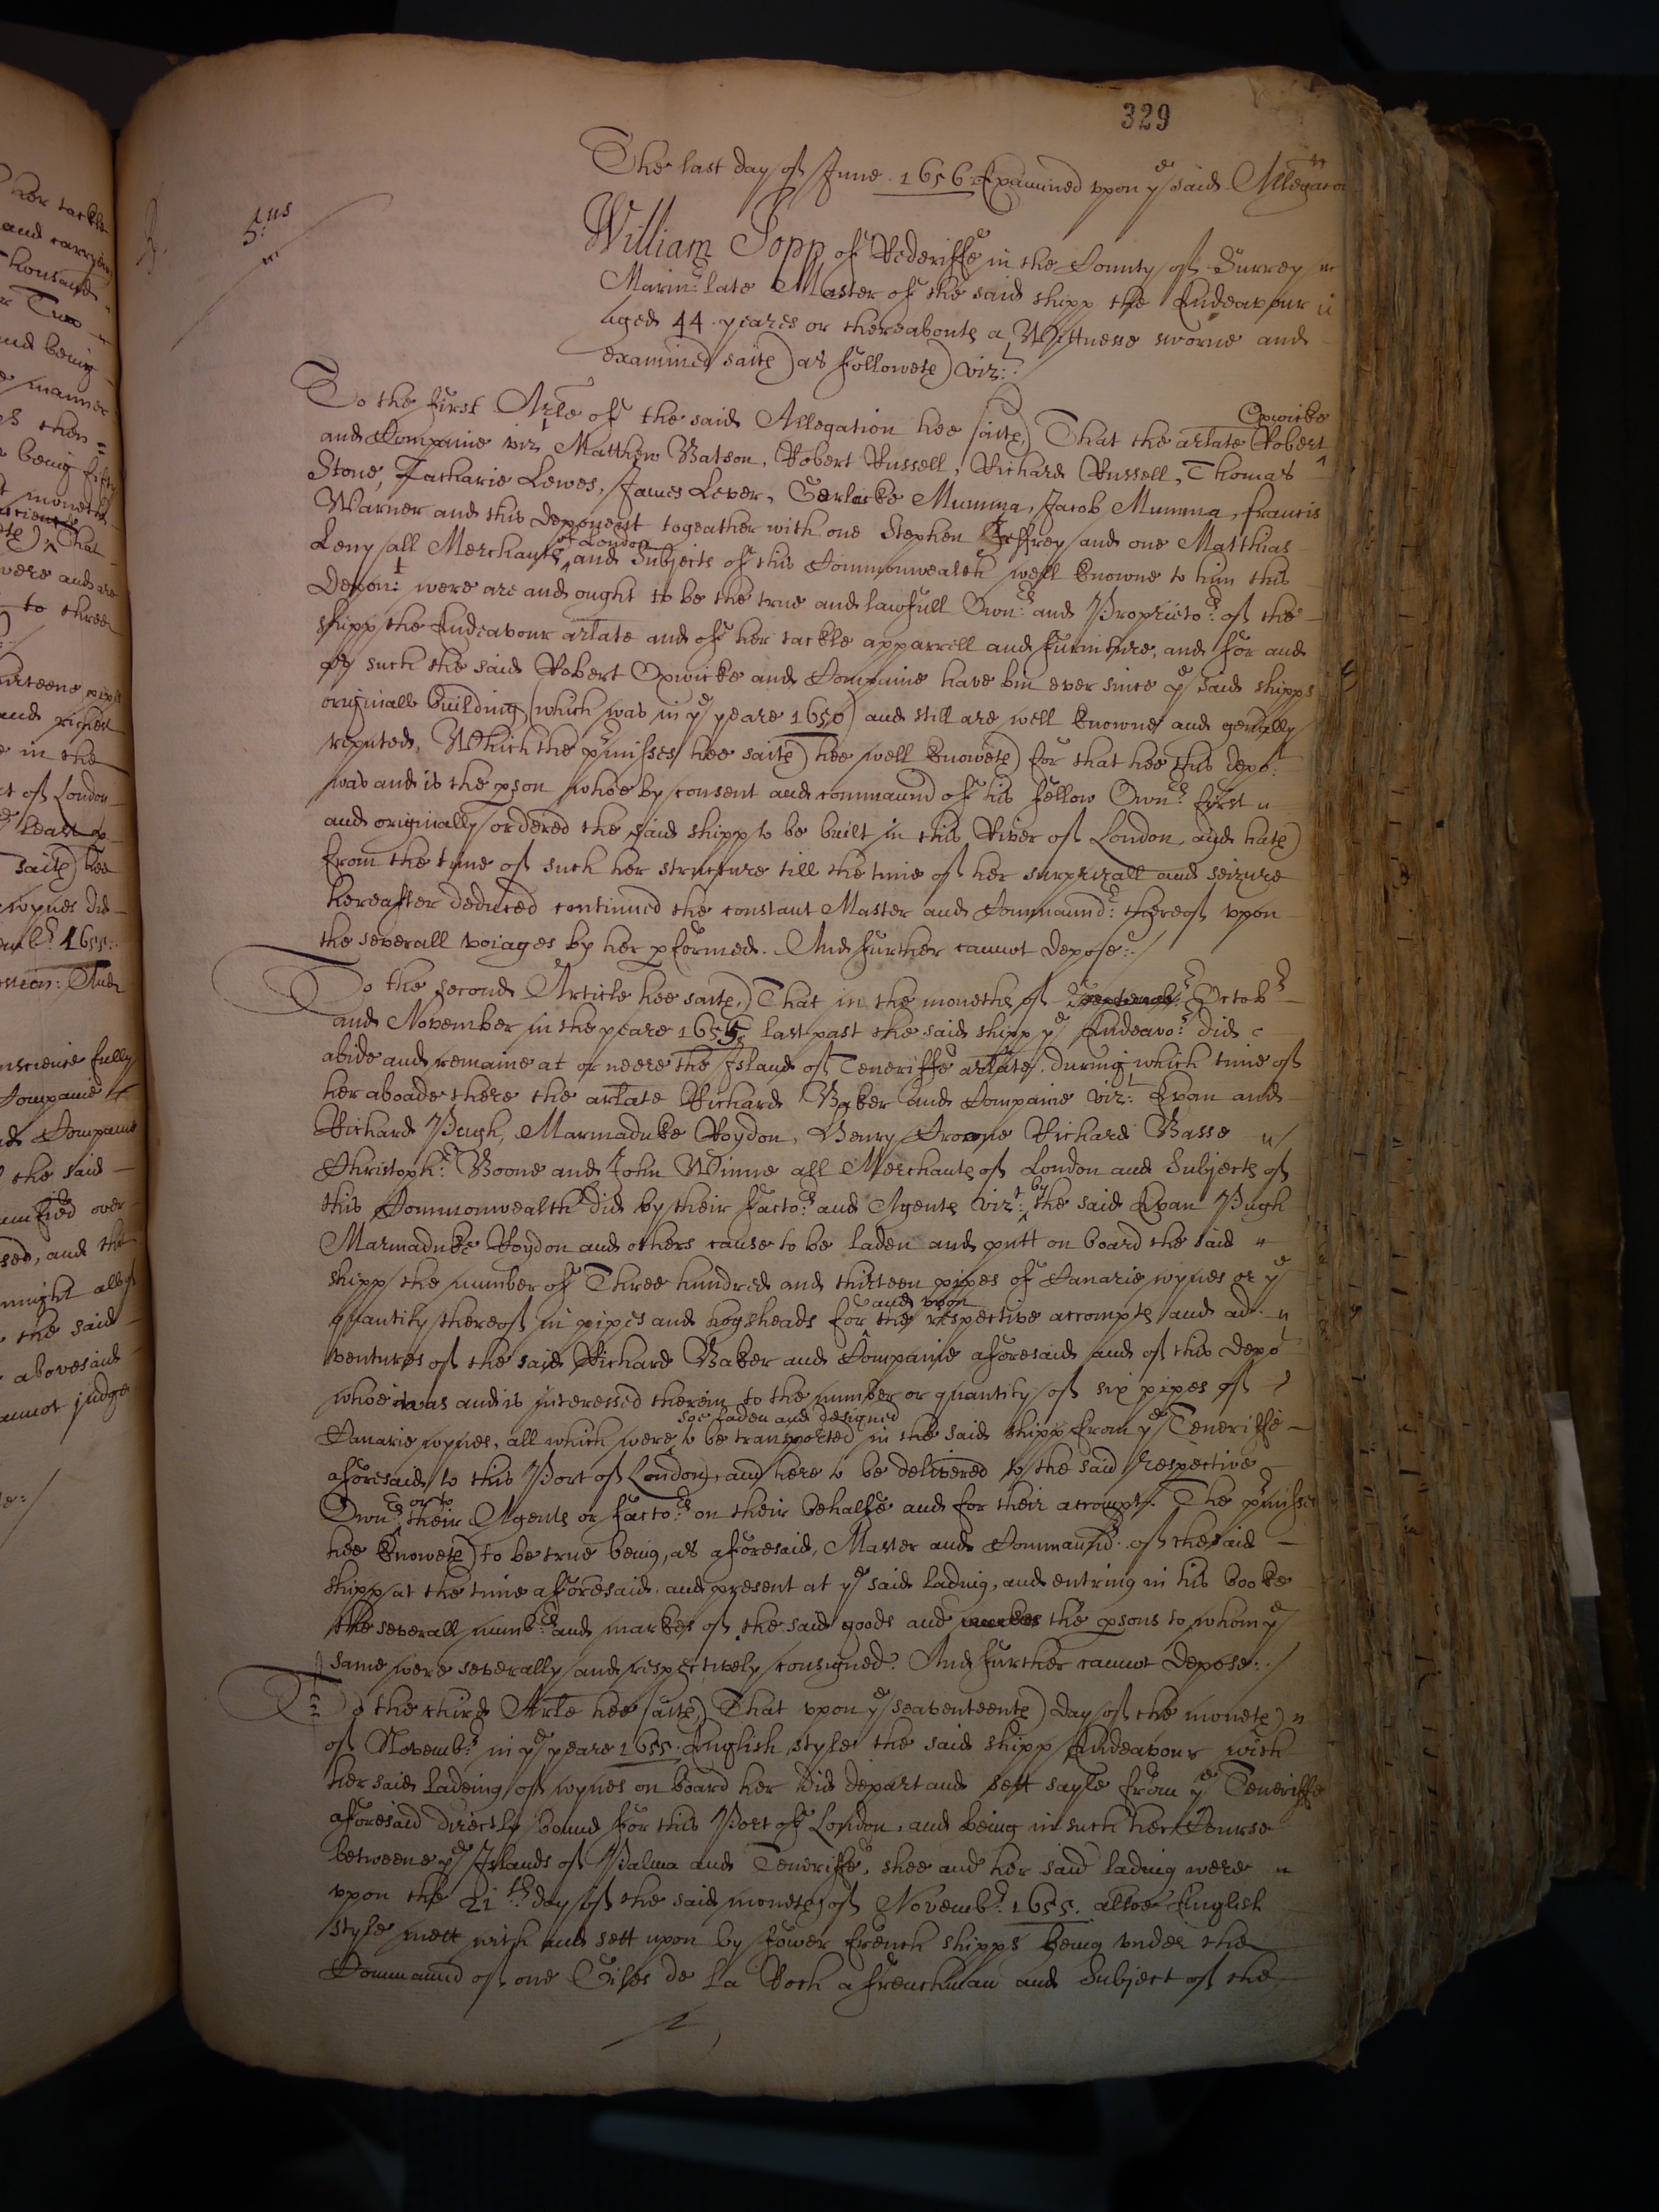 329
The last day of June 1656. Examined upon ye said Allegaton
5.us
William Jopp of Rederiffe in the County of Surrey
Marinr late Master of the said shipp the Endeavour
aged 44 yeares or thereabouts a Wittnesse sworne and
examined saith as followeth vizt:
To the first Arle of the said Allegation hee saith, That the arlate Robert Opwicke
and Companie vizt Matthew Batson, Robert Russell, Richard Russell, Thomas
Stone, Zacharie Lewes, James Lever, Gerlacke Mumma, Jacob Mumma, francis
Warner and this deponent togeather with one Stephen Jeffrey and one Matthias
Leny all Merchants of London and Subjects of this Commonwealth well knowne to him this
Depont: were are and ought to be the true and lawfull Ownrs and Proprietors of the
shipp the Endeavour arlate and of her tackle apparrell and furniture, and for and
as such the said Robert Opwicke and Companie have bin ever since ye said shipps
originall building (which was in ye yeare 1650) and still are well knowne and genally
reputed, Which the pmisses hee saith hee well knoweth for that hee this depot
was and is the pson whoe by consent and commaund of his fellow Ownrs first
and originally ordered the said shipp to be built in this River of London, and hath
from the time of such her structure till the time of her surprizall and seizure
hereafter deduced continued the constant Master and Commaundr thereof upon
the severall voiages by her pformed. And further cannot depose:-/
To the second Article hee saith, That in the moneths of Octobr
and November in the yeare 1655 last past the said shipp ye Endeavor did
abide and remaine at or neere the Island of Teneriffe arlate. during which time of
her aboade there the arlate Richard Baker and Companie vizt: Evan and
Richard Pugh, Marmaduke Roydon, Henry Browne Richard Basse
Christophr Boone and John Winne all Merchants of London and Subjects of
this Commonwealth did by their factors and Agents vizt: by the said Evan Pugh
Marmaduke Roydon and others cause to be laden and putt on board the said
shipp the number of Three hundred and thirteen pipes of Canarie wynes or ye
quantity thereof in pipes and hogsheads for and upon the respective accompts and ad-
ventures of the said Richard Baker and Companie aforesaid and of this depot
whoe was and is interessed therein to the number or quantity of six pipes of
Canarie wynes, all which were soe laden and designed to be transported in the said shipp from ye Teneriffe
aforesaid to this Port of London, and here to be delivered to the said respective
Ownrs or to their Agents or factors on their behalfe and for their accompt. The pmisses
hee knoweth to be true being, as aforesaid, Master and Commaundr of the said
shipp at the time aforesaid, and present at ye said lading, and entring in his booke
the severall numbrs and markes of the said goods and the psons to whom ye
same were severally and respectively consigned. And further cannot depose:-/
To the third Arle hee saith, That upon ye seaventeenth day of the moneth
of Novembr in ye yeare 1655. English style the said shipp Endeavour with
her said ladeing of wynes on board her did depart and sett sayle from ye Teneriffe
aforesaid directly bound for this Port of London, and being in such her Course
betweene ye Islands of Palma and Teneriffe, shee and her said lading were
upon the 21th day of the said moneth of Novembr 1655. alsoe English
style mett with and sett upon by fower french shipps being under the
Commaund of one Giles de la Roch a frenchman and Subject of the